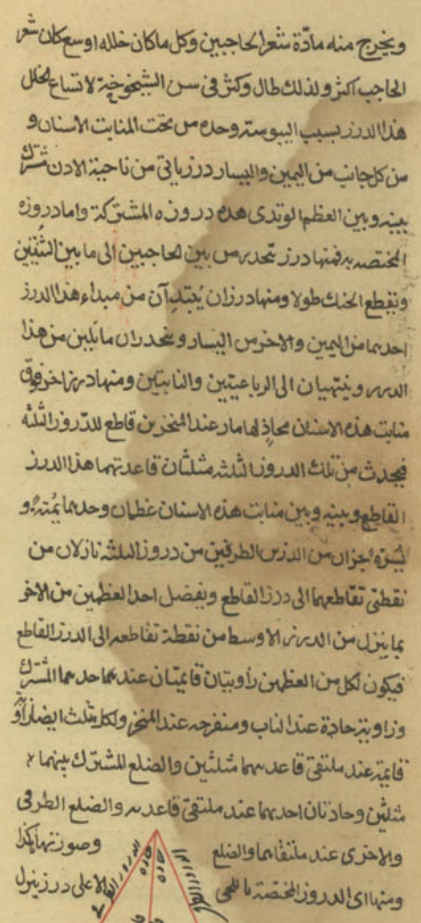 ويخرج منه مادّة شعر الحاجبين وكل ما كان خلله اوسع كان شعر
الحاجب اكثر ولذلك طال وكثر فى سن الشيخوخة لاتساع الخلل
هذا الدرز بسبب اليبوسة وحده من تحت المنابت الاسنان و
من كل جانب من اليمين واليسار درز ياتى من ناحية الاذن مشترك
بينه وبين العظم الوتدى هذه دروزه المشتركة واما دروزه
المختصه به فمنها درز ينحدر من بين الحاجبين الى ما بين الثنيتين
ويقطع الحنك طولا ومنها درزان يبتدآن من مبداء هذا الدرز
احدهما من اليمين والاخر من اليسار وينحدران مائلين من هذا
الدرز وينتهيان الى الرباعيتين والنابتين ومنها درز اخر فوق
منابت هذه الاسنان محاذ لها مار عند المنخرين قاطع للدروز الثلثه
فيحدث من تلك الدروز الثلثه مثلثان قاعدتهما هذا الدرز
القاطع وبينه وبين منابت هذه الاسنان عظمان وحدهما يمنة و
يسرة جزان من الدرزين الطرفين من دروز الثلثه نازلان من
نقطتى تقاطعهما الى درز القاطع ويفضل احد العظمين من الاخر
بما ينزل من الدرز الاوسط من نقطة تقاطعه الى الدرز القاطع
فيكون لكل من العظمين زاويتان قايمتان عند حدهما المشترك
وزاوية حادة عند الناب ومنفرجه عند المنخر ولكل مثلث ايضا زاوية
قايمة عند ملتقى قاعدتهما مثلثين والضلع المشترك بينهما
مثلثين وحادتان احدهما عند ملتقى قاعدته والضلع الطرفى
والاخرى عند ملتقاهما والضلع وصورتها هكذا
ومنها اى الدروز المختصة باللحى الاعلى درز ينزل
حادة
حادة